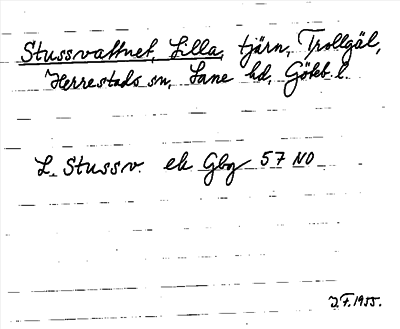 Stussvattnet, Lilla, tjärn, Trollgäl,
Herrestads sn, Lane hd, Göteb l.
L. Stussv. ek Gbg 57 NO
J.F. 1955.